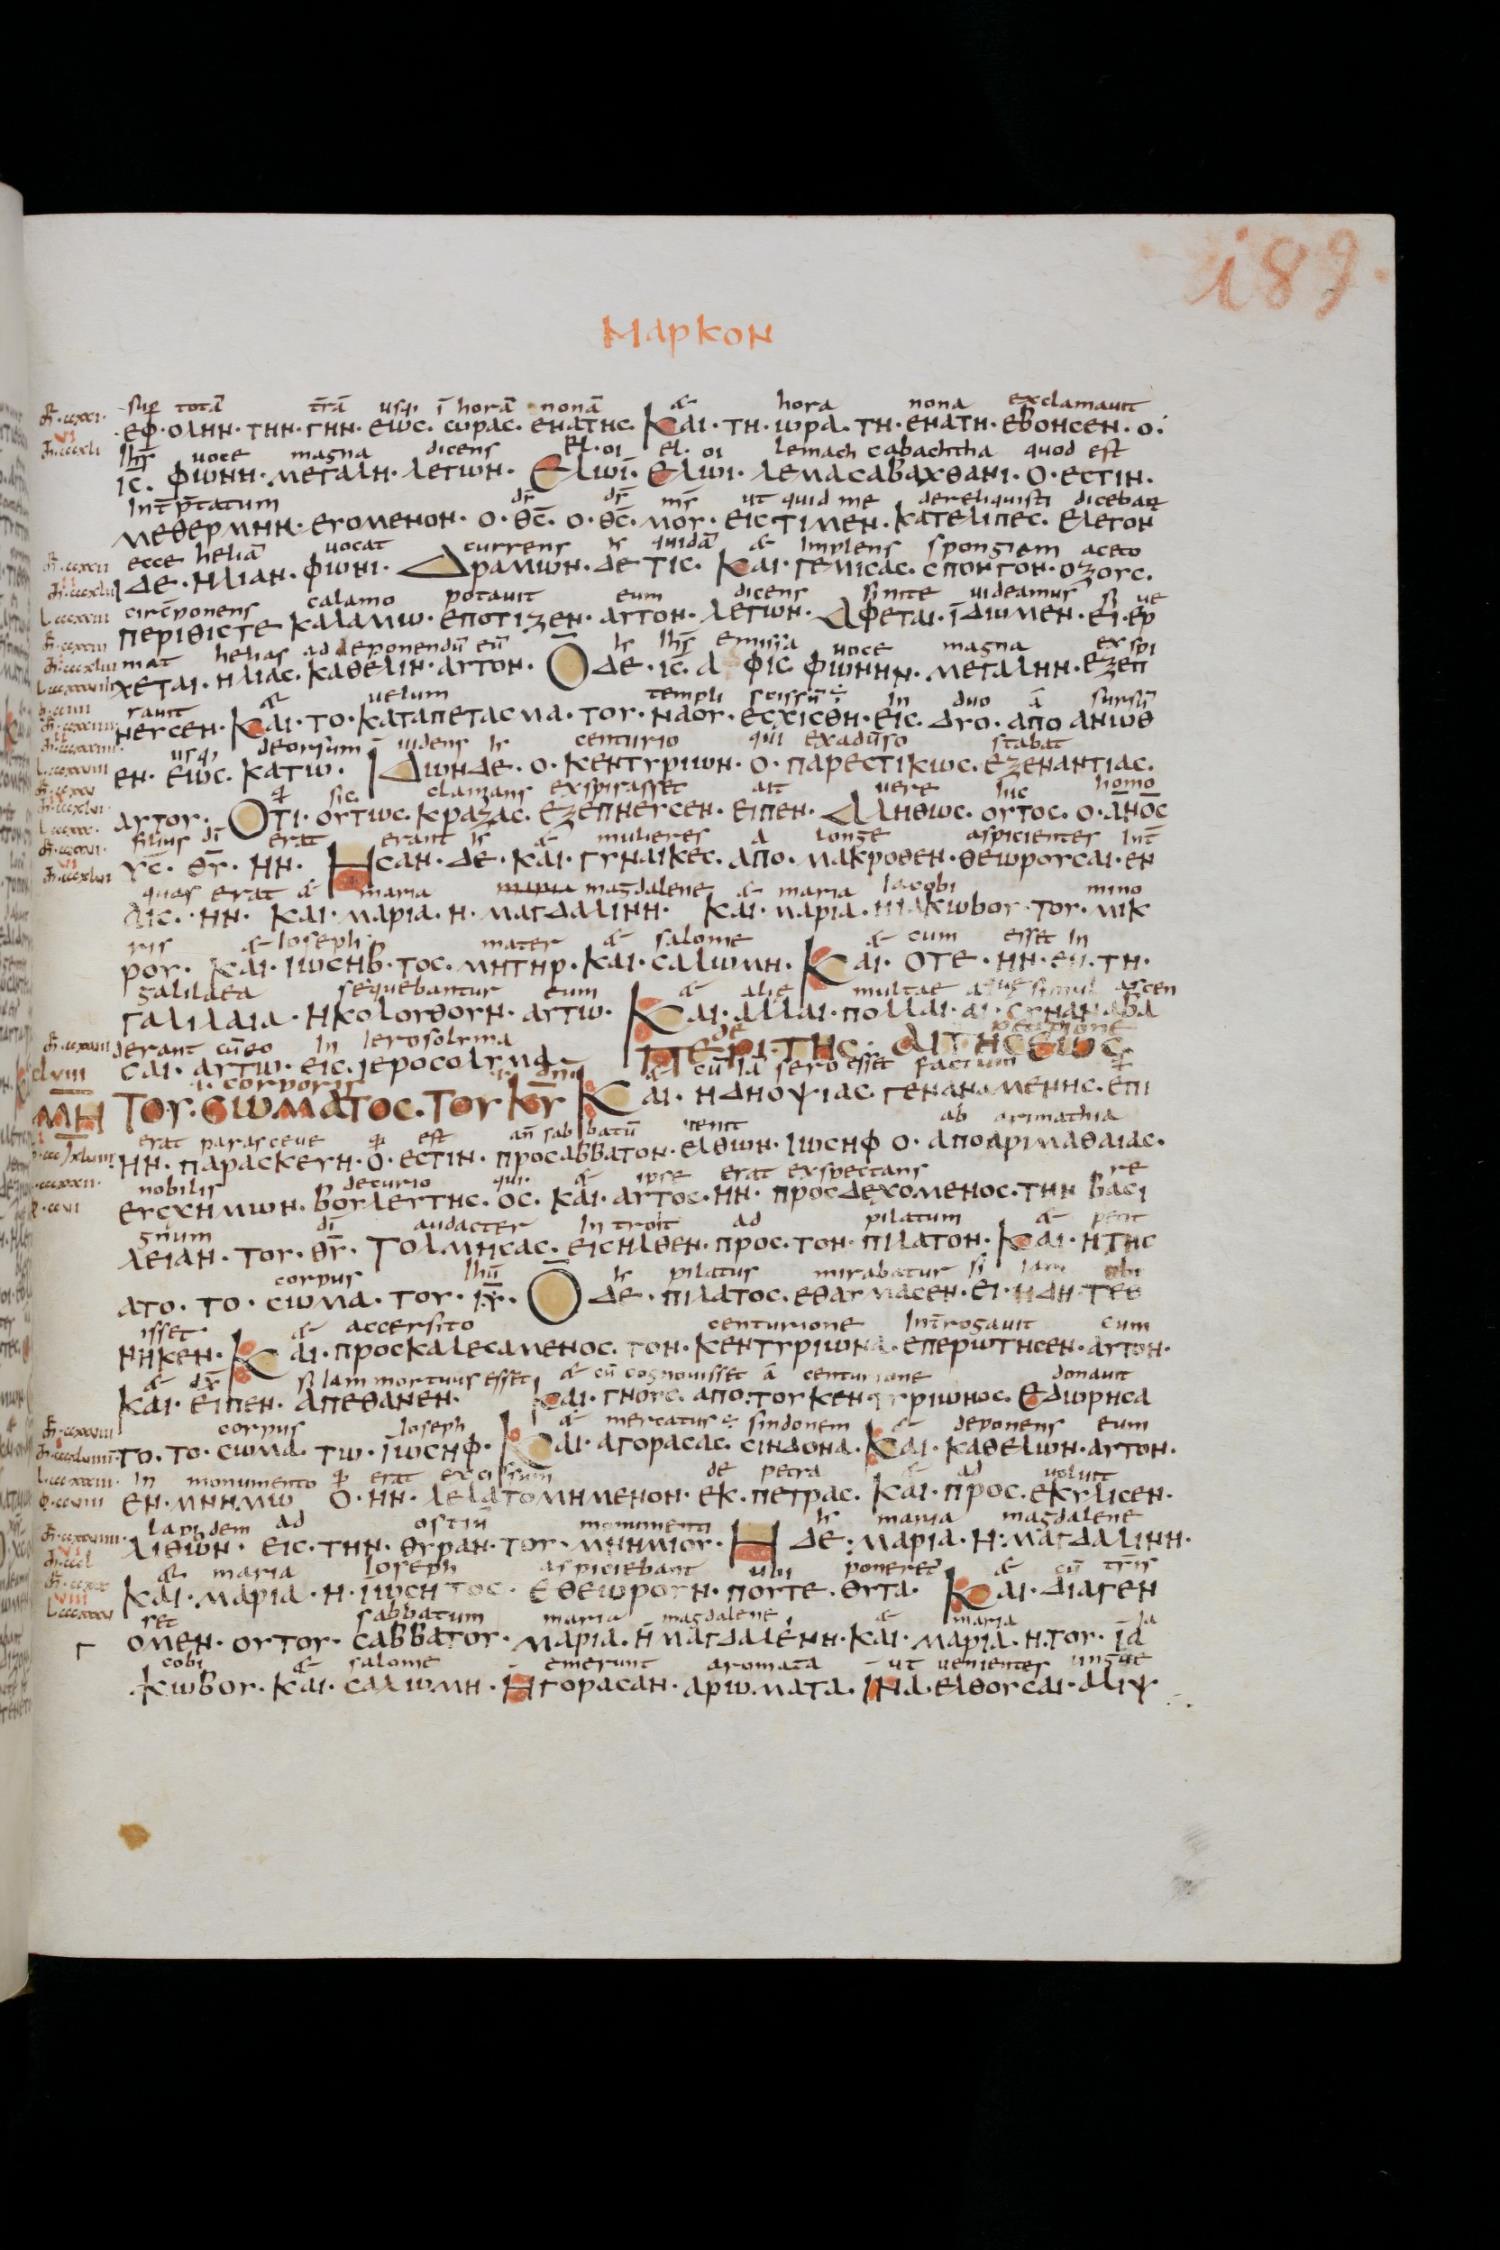 189.
Μαρκον
sup totā trā usq; ī horā nonā & hora nona exclamauit
ΕΦ·ΟΛΗΝ·ΤΗΝ·ΓΗΝ·ΕΩC·ωΡΑC·ΕΝΑΤΗC·ΚΑΙ·ΤΗ·ωΡΑ·ΤΗ·ΕΝΑΤΗ·ΕΒΟΗCΕΝ·Ο·
ihs uoce magna dicens El·oi el·oi lemach cabachtha quod est
ΙC·ΦωΝΗ·ΜΕΓΑΛΗ·ΛΕΓωΝ·ΕΛωΙ·ΕΛωΙ·ΛΕΜΑCΑΒΑΧΘΑΝΙ·Ο·ΕCΤΙΝ·
Intptatum ds ds ms ut quid me dereliquisti dicebant
ΜΕΘΕΡΜΗΝ·ΕΥΟΜΕΝΟΝ·Ο·ΘC·Ο·ΘC·ΜΟΥ·ΕΙCΤΙΜΕΝ·ΚΑΤΕΛΙΠΕC·ΕΛΕΓΟΝ
ecce heliā uocat currens quidā & implens spongiam aceto
ΙΔΕ·ΗΛΙΑΝ·ΦωΝΙ·ΔΡΑΜωΝ·ΔΕΤΙC·ΚΑΙ·ΓΕΜΙCΑC·CΠΟΝΓΟΝ·ΟΖΟΥC·
circponens calamo potauit eum dicens sinite uideamus si ue
ΠΕΡΙΘΙCΤΕ ΚΑΛΑΜω·ΕΠΟΤΙΖΕΝ·ΑΥΤΟΝ·ΛΕΓωΝ·ΑΦΕΤΑΙ·ΙΔωΜΕΝ·ΕΙ·ΕΡ
niat helias ad deponendū eū ihs emissa uoce magna exspi
ΧΕΤΑΙ·ΗΛΙΑC·ΚΑΘΕΛΙΝ·ΑΥΤΟΝ·Ο ΔΕ·ΙC·ΑΦΙC ΦωΝΗΝ·ΜΕΓΑΛΗΝ·ΕΖΕΠ
rauit & uelum templi scissū in duo ā sursū
ΝΕΥCΕΝ·ΚΑΙ·ΤΟ·ΚΑΤΑΠΕΤΑCΜΑ·ΤΟΥ·ΝΑΟΥ·ΕCΧΙCΘΗ·ΕΙC·ΔΥΟ·ΑΠΟ ΑΝωΘ
usq; deorsum uidens centurio qui exaduso stabat
ΕΝ·ΕΩC·ΚΑΤω·ΙΔωΝΔΕ·Ο·ΚΕΝΤΥΡΙωΝ·Ο·ΠΑΡΕCΤΙΚωC·ΕΖΕΝΑΝΤΙΑC·
sic clamans exspirasset ait uere hic homo
ΑΥΤΟΥ·ΟΤΙ·ΟΥΤωC·ΚΡΑΖΑC·ΕΖΕΠΝΕΥCΕΝ·ΕΙΠΕΝ·ΑΛΗΘωC·ΟΥΤΟC·Ο·ΑΝΟC
filius di erat erant & mulieres a longe aspicientes int
ΥC·ΘΥ·ΗΝ·ΗCΑΝ·ΔΕ·ΚΑΙ·ΓΥΝΑΙΚΕC·ΑΠΟ·ΜΑΚΡΟΘΕΝ·ΘΕωΡΟΥCΑΙ·ΕΝ
quas erat & maria magdalene & maria iacobi mino
ΑΙC·ΗΝ·ΚΑΙ·ΜΑΡΙΑ·Η·ΜΑΓΔΑΛΙΝΗ·ΚΑΙ·ΜΑΡΙΑ·ΗΙΑΚωΒΟΥ·ΤΟΥ·ΜΙΚ
ris & ioseph mater & salome & cum esset in
ΡΟΥ·ΚΑΙ·ΙωCΗΒ·ΤΟC·ΜΗΤΗΡ·ΚΑΙ·CΑΛωΜΗ·ΚΑΙ·ΟΤΕ·ΗΝ·ΕΝ·ΤΗ·
galilaea sequebantur eum & alie multae
ΓΑΛΙΛΑΙΑ·ΗΚΟΛΟΥΘΟΥΝ·ΑΥΤω·ΚΑΙ·ΑΛΛΑΙ·ΠΟΛΛΑΙ·ΑΙ·CΥΝΑΝΑΒΑ
derant cū eo in ierosolima de petitione
CΑΙ·ΑΥΤω·ΕΙC·ΙΕΡΟCΟΛΥΜΑ ΠΕΡΙ·ΤΗC·ΑΙΤΗCΕωC
corporis & cū iā sero esset factum
ΜΗ ΤΟΥ·CωΜΑΤΟC·ΤΟΥ ΚΥ ΚΑΙ·ΗΔΗΟΨΙΑC·ΓΕΝΑΝΑΜΕΝΗC·ΕΠΙ
erat parasceue est an sabbatū uenit ab arimathia
ΗΝ·ΠΑΡΑCΚΕΥΗ·Ο·ΕCΤΙΝ·ΠΡΟCΑΒΒΑΤΟΝ·ΕΛΘωΝ·ΙωCΗΦ Ο·ΑΠΟΑΡΙΜΑΘΑΙΑC·
nobilis decurio qui & ipse erat exspectans re
ΕΥCΧΗΜωΝ·ΒΟΥΛΕΥΤΗC·ΟC·ΚΑΙ·ΑΥΤΟC·ΗΝ·ΠΡΟCΔΕΧΟΜΕΝΟC·ΤΗΝ ΒΑCΙ
gnum di audacter introit ad pilatum & petit
ΛΕΙΑΝ·ΤΟΥ·ΘΥ·ΤΟΛΜΗCΑC·ΕΙCΗΛΘΕΝ·ΠΡΟC·ΤΟΝ·ΠΙΛΑΤΟΝ·ΚΑΙ·ΗΤΗC
corpus ihu pilatus mirabatur si iam obi
ΑΤΟ·ΤΟ·CωΜΑ·ΤΟΥ·ΙΥ·Ο ΔΕ·ΠΙΛΑΤΟC·ΕΘΑΥΜΑCΕΝ·ΕΙ·ΗΔΗ·ΤΕΘ
isset & accersito centurione introgauit eum
ΝΗΚΕΝ·ΚΑΙ·ΠΡΟCΚΑΛΕCΑΜΕΝΟC·ΤΟΝ·ΚΕΝΤΥΡΙωΝΑ·ΕΠΕΡωΤΗCΕΝ·ΑΥΤΟΝ·
& si iam mortuus esset & cū cognouisset ā centurione donauit
ΚΑΙ·ΕΙΠΕΝ·ΑΠΕΘΑΝΕΝ·ΚΑΙ·ΓΝΟΥC·ΑΠΟ·ΤΟΥ ΚΕΝΤΥΡΙωΝΟC·ΕΔωΡΗCΑ
corpus ioseph & mercatus sindonem & deponens eum
ΤΟ·ΤΟ·CωΜΑ·Τω·ΙωCΗΦ·ΚΑΙ·ΑΓΟΡΑCΑC·CΙΝΔΟΝΑ·ΚΑΙ·ΚΑΘΕΛωΝ·ΑΥΤΟΝ·
in monumento erat excissum de petra & ad uoluit
ΕΝ·ΜΝΗΜω Ο·ΗΝ·ΛΕΛΑΤΟΜΗΜΕΝΟΝ·ΕΚ·ΠΕΤΡΑC·ΚΑΙ·ΠΡΟC·ΕΚΥΛΙCΕΝ·
lapidem ad ostiū monumenti maria magdalene
ΛΙΘωΝ·ΕΙC·ΤΗΝ·ΘΥΡΑΝ·ΤΟΥ·ΜΝΗΜΙΟΥ·Η ΔΕ·ΜΑΡΙΑ·Η·ΜΑΓΔΑΛΙΝΗ·
& maria ioseph aspiciebant ubi poneret & cū trns
ΚΑΙ·ΜΑΡΙΑ·Η·ΙωCΗΤΟC·ΕΘΕωΡΟΥΝ·ΠΟΥΤΕ·ΘΥΤΑ·ΚΑΙ·ΔΙΑΓΕΝ
set sabbatum maria magdalene & maria ia
ΟΜΕΝ·ΟΥΤΟΥ·CΑΒΒΑΤΟΥ·ΜΑΡΙΑ·Η ΜΑΓΔΑΛΕΝΗ·ΚΑΙ·ΜΑΡΙΑ·Η·ΤΟΥ·ΙΑ
cobi & salome emerunt aromata ut uenientes ungue
ΚωΒΟΥ·ΚΑΙ·CΑΛωΜΗ·ΗΓΟΡΑCΑΝ·ΑΡωΜΑΤΑ·ΙΝΑ·ΕΛΘΟΥCΑΙ·ΑΛΙΨ